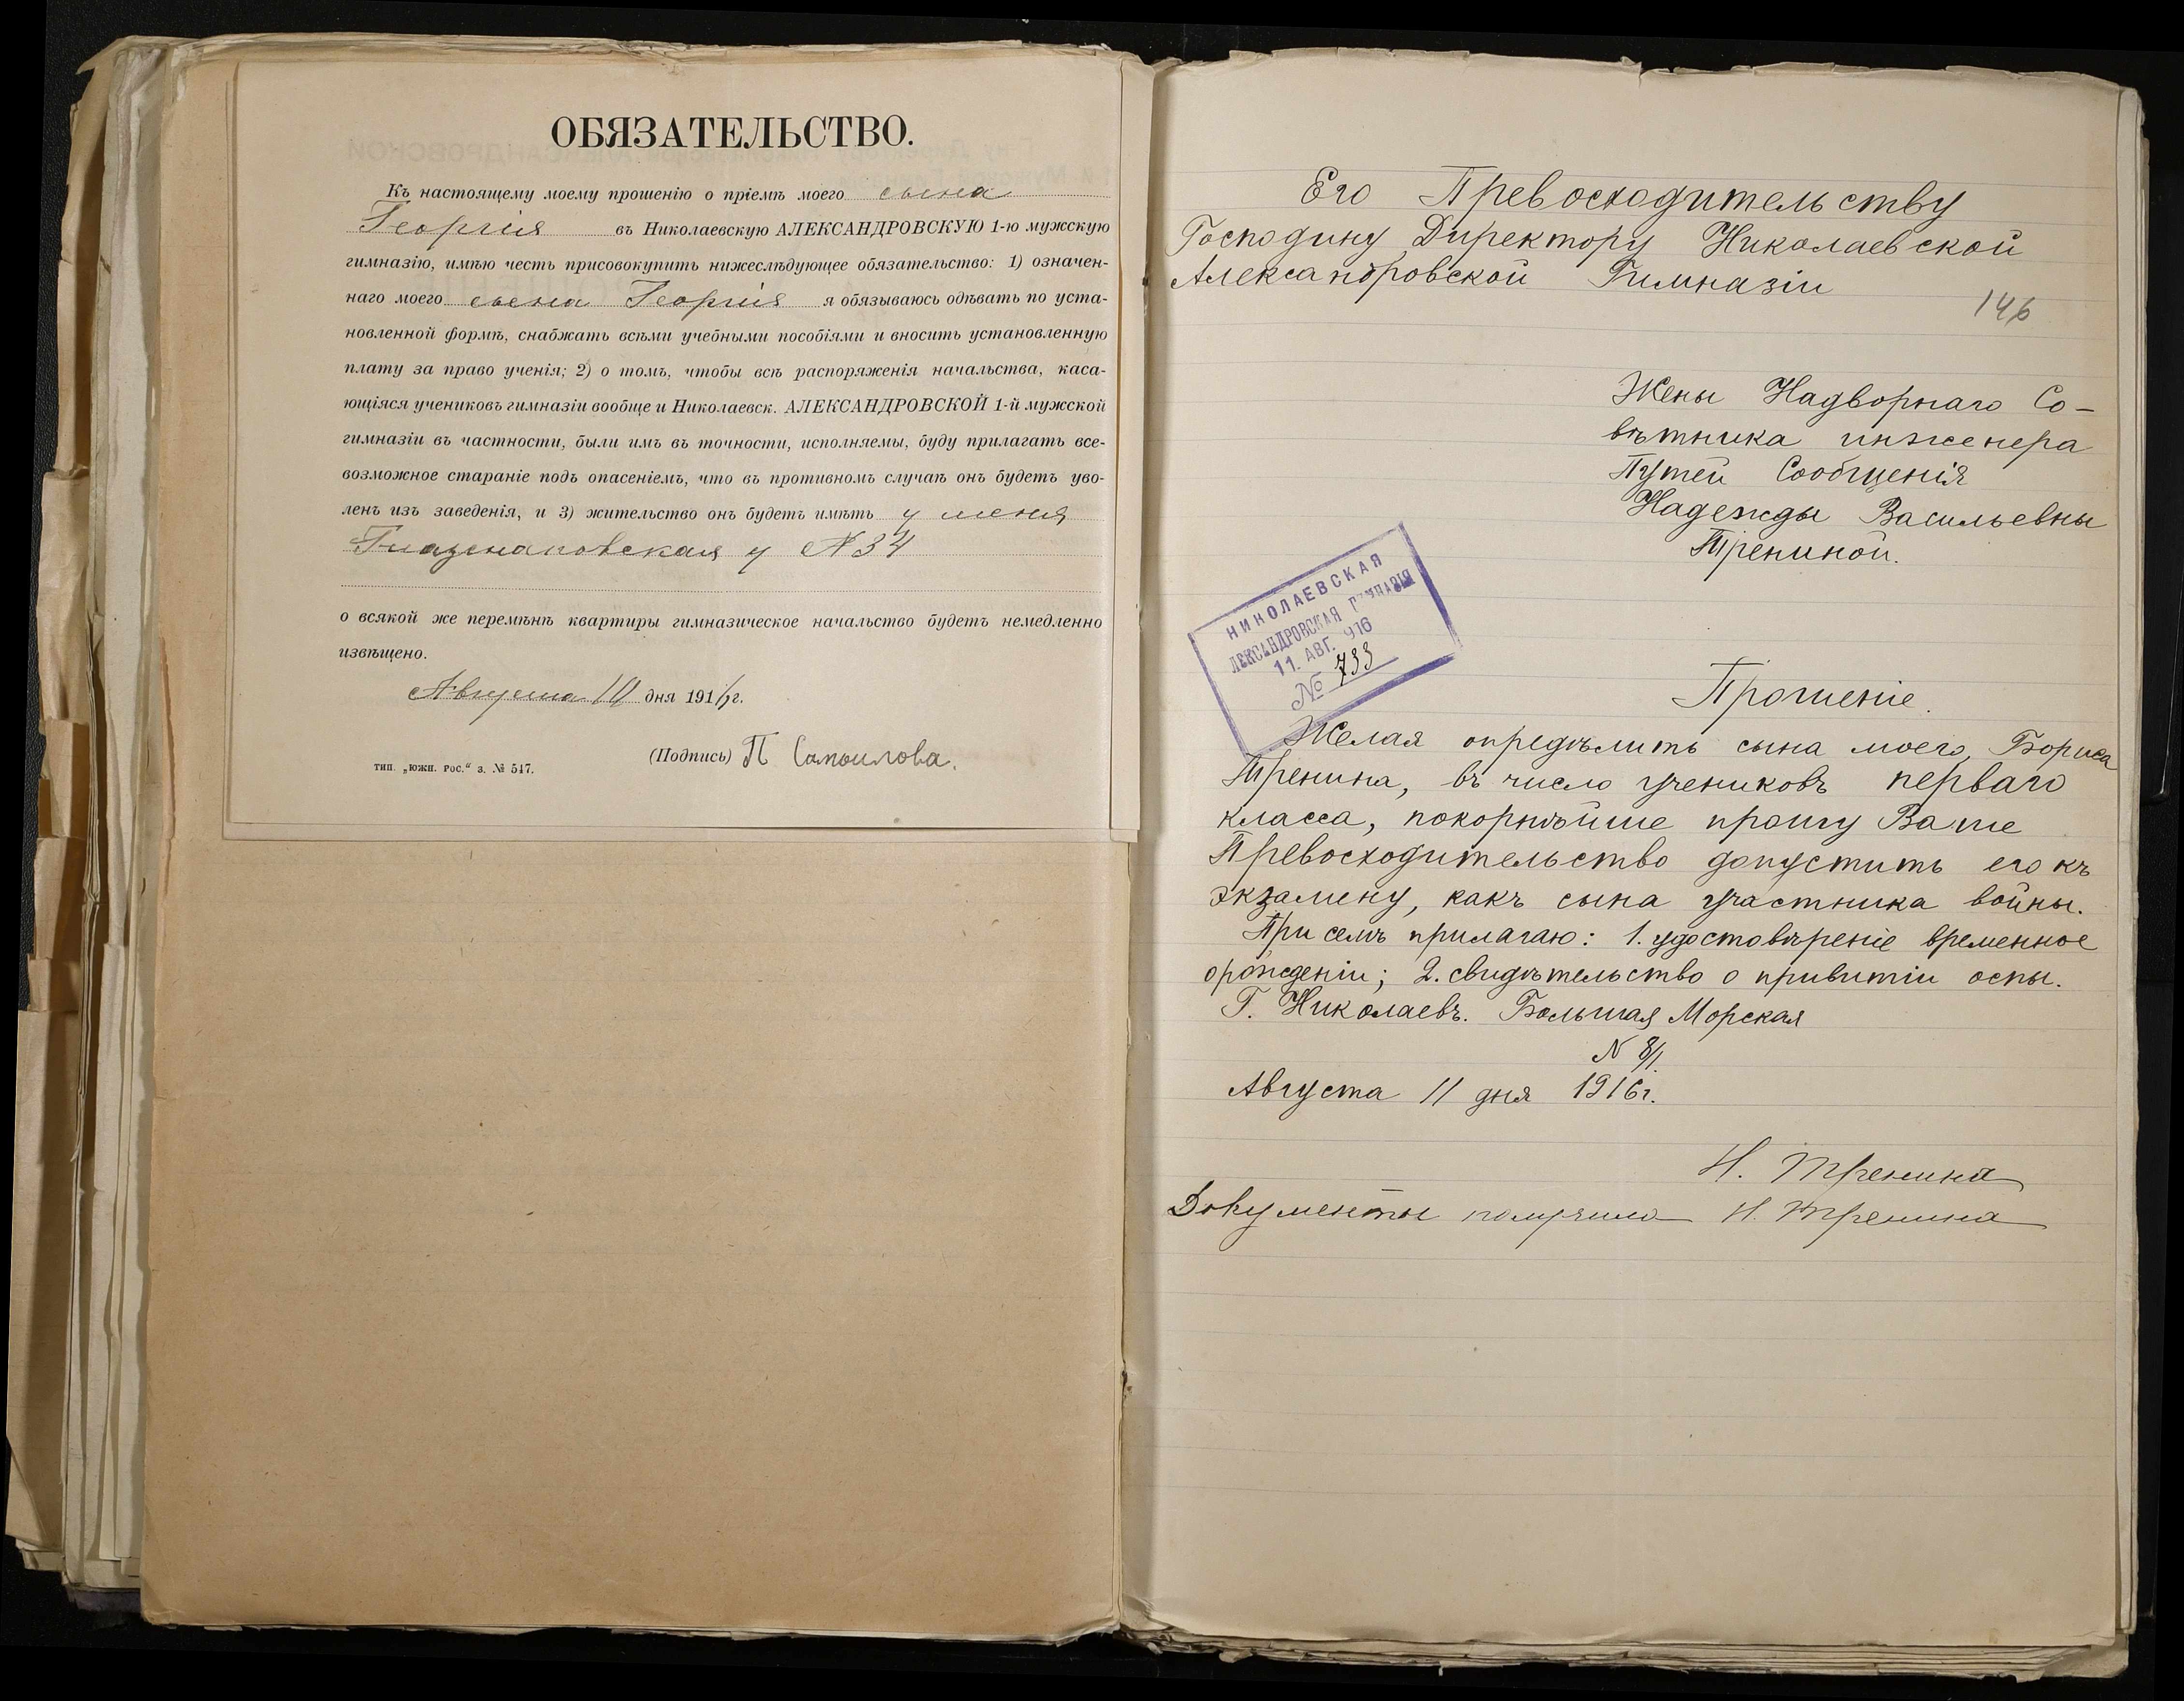 ОБЯЗАТЕЛЬСТВО.
Къ настоящему моему прошенію о пріемѣ моего сына
Георгія въ Николаевскую АЛЕКСАНДРОВСКУЮ 1-ю мужскую
гимназію, имѣю честь присовокупить нижеслѣдующее обязательство: 1) означен-
наго моего сына Георгія я обязываюсь одѣвать по уста-
новленной формѣ, снабжать всѣми учебными пособіями и вносить установленную
плату за право ученія; 2) о томъ, чтобы всѣ распоряженія начальства, каса-
ющіяся учениковъ гимназіи вообще и Николаевск. АЛЕКСАНДРОВСКОЙ 1-й мужской
гимназіи въ частности, были имъ въ точности, исполняемы, буду прилагать все-
возможное стараніе подъ опасеніемъ, что въ противномъ случаѣ онъ будетъ уво-
ленъ изъ заведенія, и 3) жительство онъ будетъ имѣть у меня
Глазенаповская у N 34
о всякой же перемѣнѣ квартиры гимназическое начальство будетъ немедленно
извѣщено.
Августа 10 дня 1916 г.
(Подпись) П Самоилова.
тип. „южн. рос.“ з. № 547.
Его Превосходительству
Господину Директору Николаевской
Александровской Гимназіи
146
Жены Надворнаго Со-
вѣтника инженера
Путей Сообщенія
Надежды Васильевны
Трениной.
НИКОЛАЕВСКАЯ
ЛЕКСАНДРОВСКАЯ ГИМНАЗІЯ
11. АВГ. 916
№ 733
Прошеніе.
Желая опредѣлить сына моего, Бориса
Тренина, въ число учениковъ перваго
класса, покорнѣйше прошу Ваше
Превосходительство допустить его къ
экзамену, какъ сына участника войны.
При семъ прилагаю: 1. удостовѣреніе временное
о рожденіи; 2. свидѣтельство о привитіи оспы.
Г. Николаевъ. Большая Морская
N 8/1.
Августа 11 дня 1916 г.
Н. Тренина
Документы получила Н. Тренина